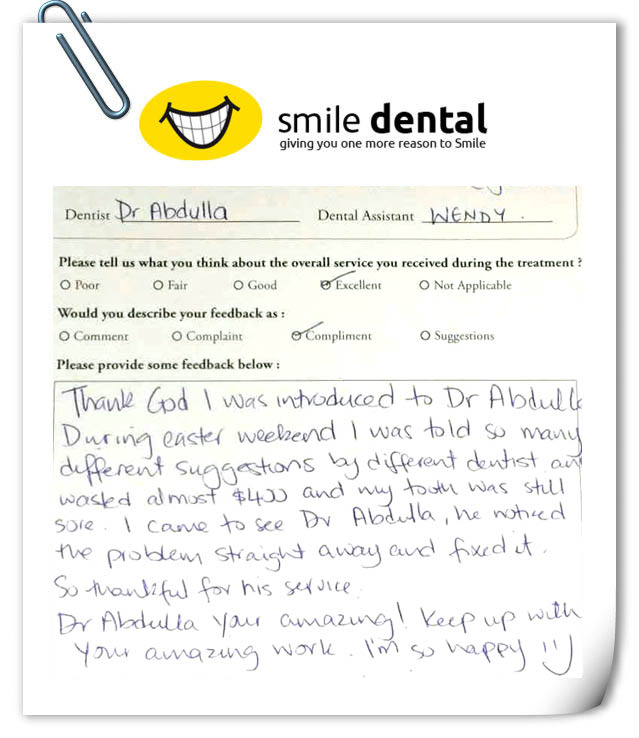 smile dental
giving you one more reason to Smile
Dentist Dr Abdulla Dental Assistant WENDY.
Please tell us what you think about the overall service you received during the treatment ?
Poor Fair Good Excellent Not Applicable
Would you describe your feedback as :
Comment Complaint Compliment Suggestions
Please provide some feedback below :
Thank God I was introduced to Dr Abdulla
During easter weekend I was told so many
different suggestions by different dentist an
wasted almost $400 and my tooth was still
sore. I came to see Dr Abdulla, he noticed
the problem straight away and fixed it.
So thankful for his service.
Dr Abdulla your amazing! Keep up with
your amazing work. I'm so happy !!)